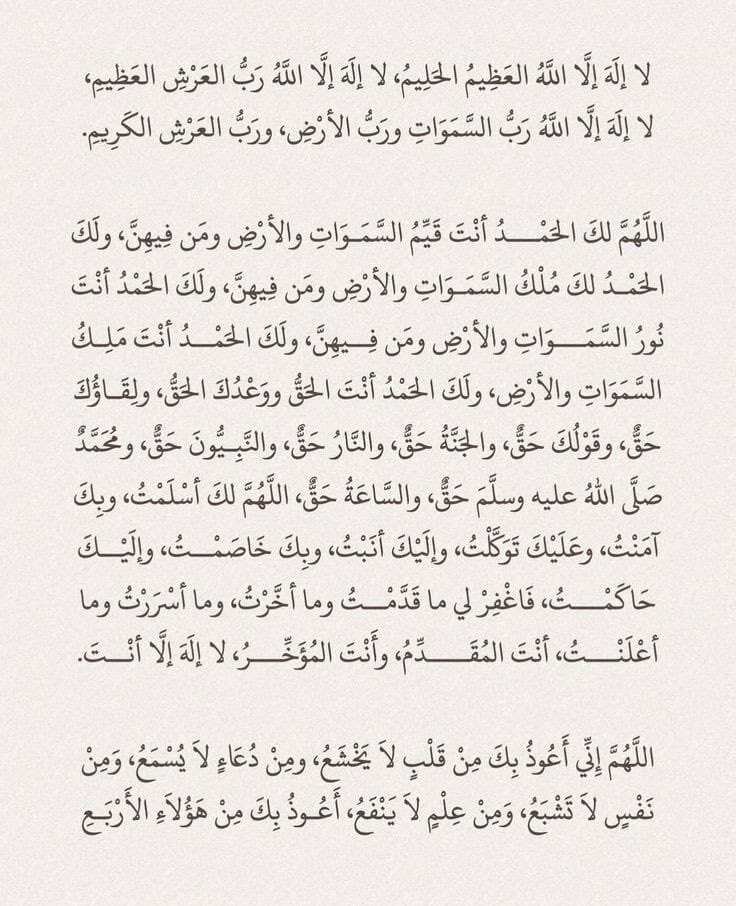 لا إلَهَ إلَّا اللَّهُ العَظِيمُ الحَلِيمُ، لا إلَهَ إلَّا اللَّهُ رَبُّ العَرْشِ العَظِيمِ،
لا إلَهَ إلَّا اللَّهُ رَبُّ السَّمَوَاتِ ورَبُّ الأرْضِ، ورَبُّ العَرْشِ الكَرِيمِ.
اللَّهُمَّ لكَ الحَمْــــدُ أنْتَ قَيِّمُ السَّمَـوَاتِ والأرْضِ ومَن فِيهِنَّ، ولَكَ
الحَمْـدُ لكَ مُلْكُ السَّمَـوَاتِ والأرْضِ ومَن فِيهِنَّ، ولَكَ الحَمْدُ أنْتَ
نُورُ السَّمَــــوَاتِ والأرْضِ ومَن فِــــيهِنَّ، ولَكَ الحَمْــــدُ أنْتَ مَلِــكُ
السَّمَوَاتِ والأرْضِ، ولَكَ الحَمْدُ أنْتَ الحَقُّ ووَعْدُكَ الحَقُّ، ولِقَــاؤُكَ
حَقٌّ، وقَوْلُكَ حَقٌّ، والجَنَّةُ حَقٌّ، والنَّارُ حَقٌّ، والنَّبِــيُّونَ حَقٌّ، ومُحَمَّدٌ
صَلَّى اللهُ عليه وسلَّمَ حَقٌّ، والسَّاعَةُ حَقٌّ، اللَّهُمَّ لكَ أسْلَمْتُ، وبِكَ
آمَنْتُ، وعَلَيْكَ تَوَكَّلْتُ، وإلَيْكَ أنَبْتُ، وبِكَ خَاصَمْــــتُ، وإلَيْــــكَ
حَاكَمْــــتُ، فَاغْفِرْ لي ما قَدَّمْــــتُ وما أخَّرْتُ، وما أسْرَرْتُ وما
أعْلَنْــــتُ، أنْتَ المُقَــــدِّمُ، وأَنْتَ المُؤَخِّــــرُ، لا إلَهَ إلَّا أنْــــتَ.
اللَّهُمَّ إِنِّي أَعُوذُ بِكَ مِنْ قَلْبٍ لاَ يَخْشَعُ، ومِنْ دُعَاءٍ لاَ يُسْمَعُ، وَمِنْ
نَفْسٍ لاَ تَشْبَعُ، وَمِنْ عِلْمٍ لاَ يَنْفَعُ، أَعُــوذُ بِكَ مِنْ هَؤُلاَءِ الأَرْبَــعِ